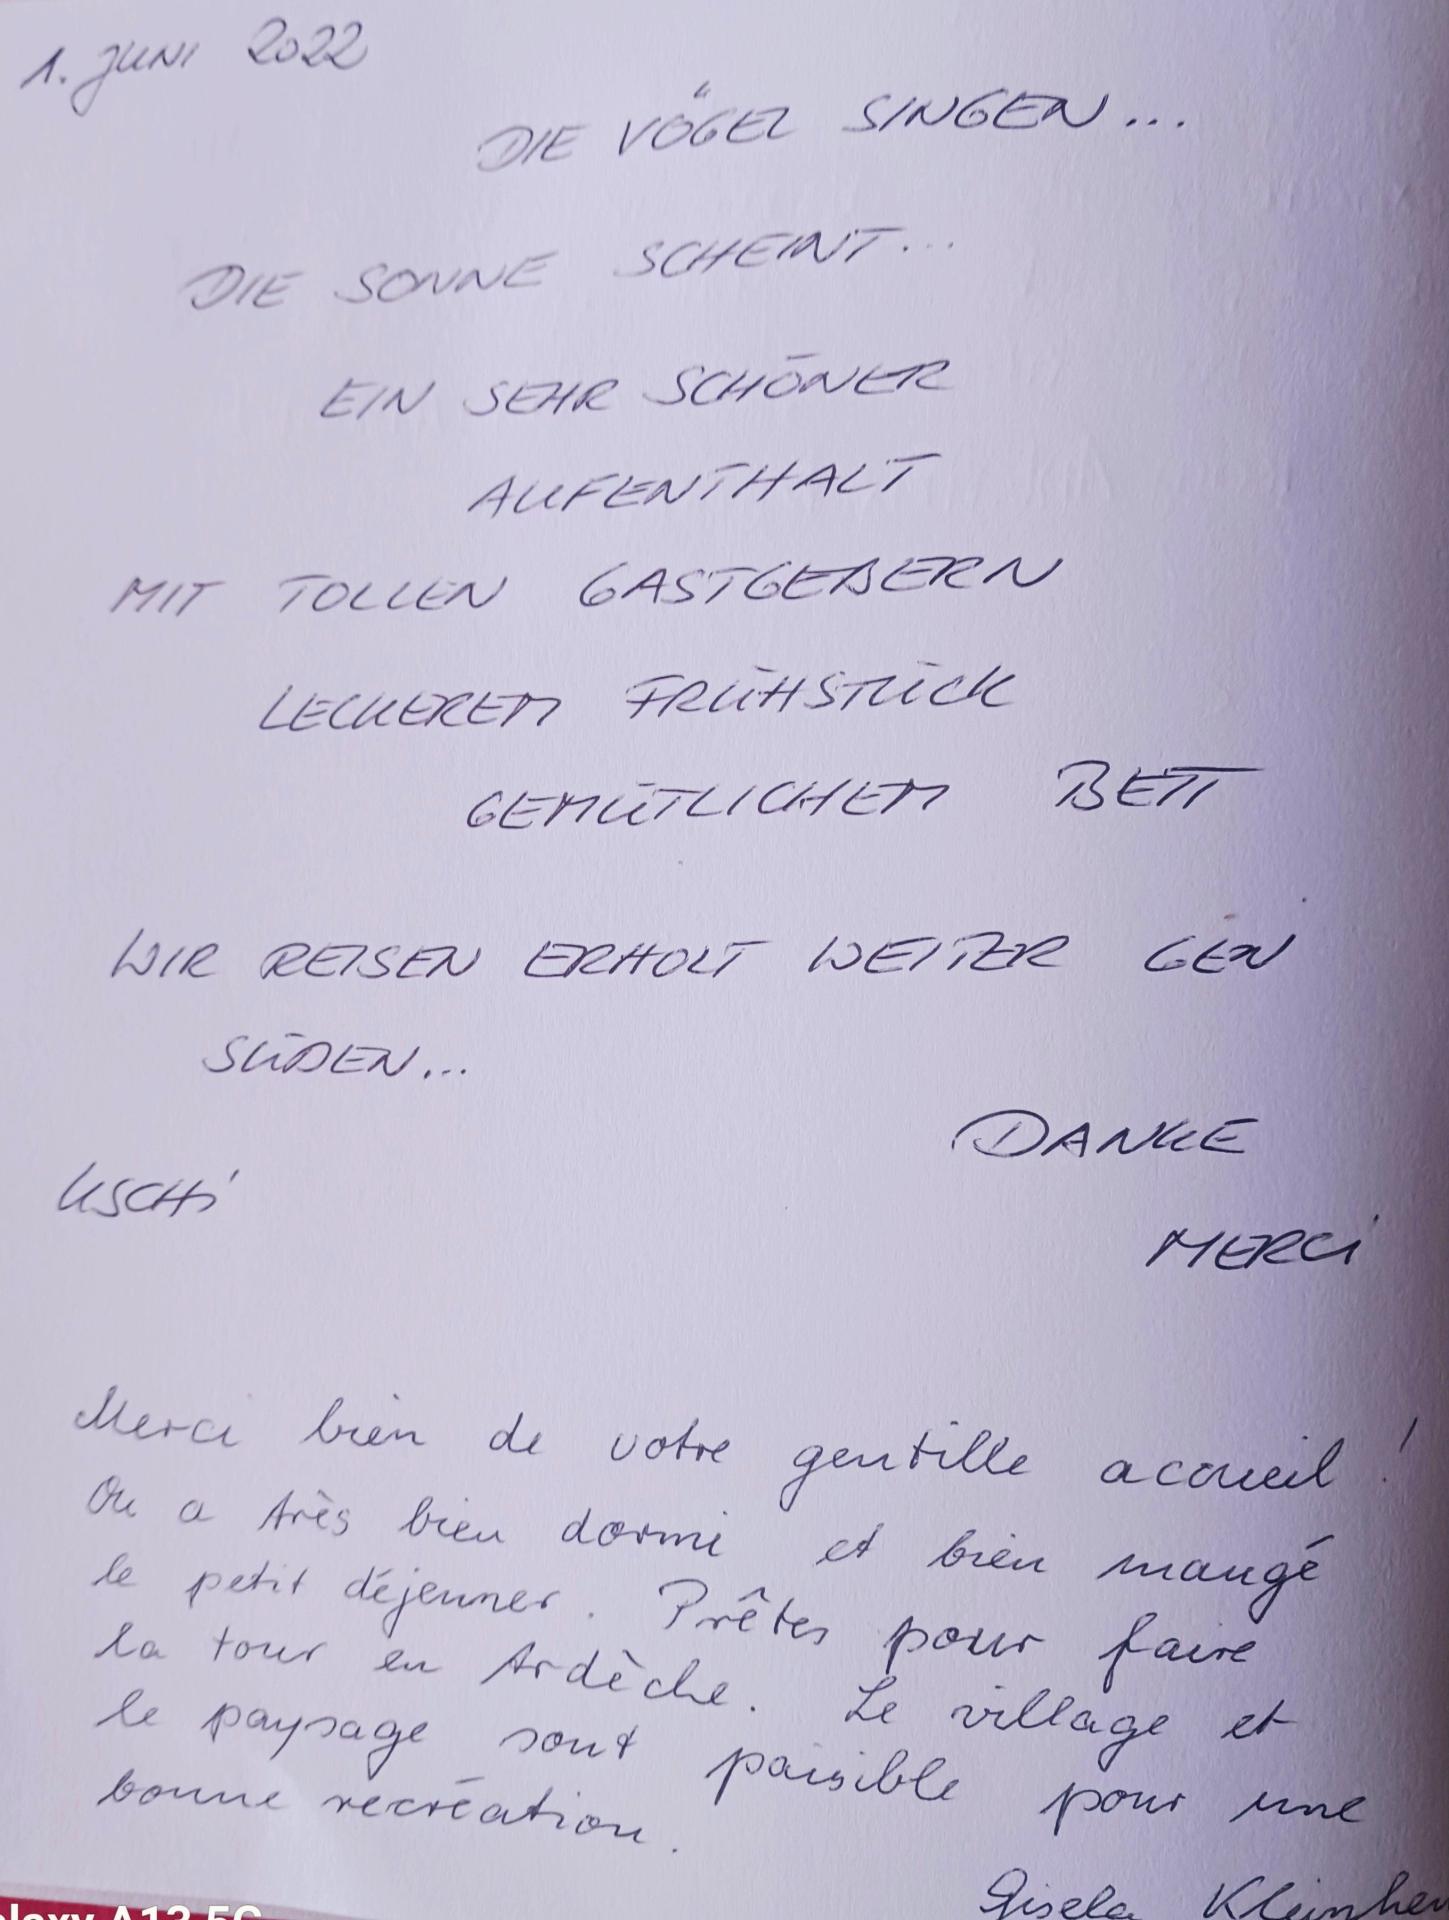 1. JUNI 2022
DIE VÖGEL SINGEN...
DIE SONNE SCHEINT...
EIN SEHR SCHÖNER
AUFENTHALT
MIT TOLLEN GASTGEBERN
LECKEREM FRÜHSTÜCK
GEMÜTLICHEM BETT
WIR REISEN ERHOLT WEITER GEN
SÜDEN...
DANKE
USCHi
MERCi
Merci bien de votre gentille acceuil !
On a très bien dormi et bien mangé
le petit déjeuner. Prêtes pour faire
la tour en Ardèche. Le village et
le paysage sont paisible pour une
bonne recréation.
Gisela